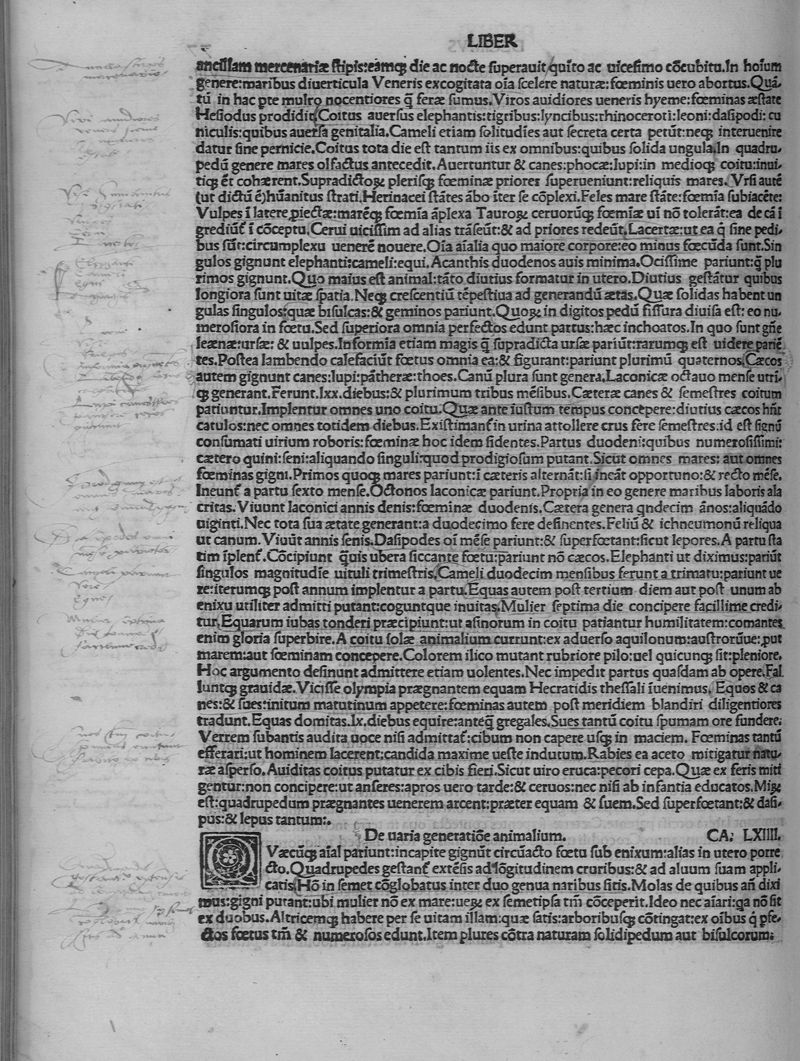 LIBER
ancillam mercenariæ stipis:eāmq; die ac nocte superauit quīto ac uicesimo cōcubitu.In hoīum
genere:maribus diuerticula Veneris excogitata oīa scelere naturæ:fœminis uero abortus.Quā
tū in hac pte multo nocentiores q̄ feræ sumus.Viros auidiores ueneris hyeme:fœminas æstate
Hesiodus prodidit.Coitus auersus elephantis:tigribus:lyncibus:rhinoceroti:leoni:dasipodi: cu
niculis:quibus auersa genitalia.Cameli etiam solitudīes aut secreta certa petūt:neq; interuenire
datur sine pernicie.Coitus tota die est tantum iis ex omnibus:quibus solida ungula.In quadru
pedū genere mares olfactus antecedit.Auertuntur & canes:phocæ:lupi:in medioq; coitu:inui
tiq; et cohærent.Supradictoꝝ plerisq; fœminæ priores superueniunt:reliquis mares. Vrsi autē
(ut dictū ē)hūanitus strati.Herinacei stātes ābo iter se cōplexi.Feles mare stāte:fœmīa subiacēte:
Vulpes ī latere piectæ:marēq; fœmīa āplexa Tauroꝝ ceruorūq; fœmīæ uī nō tolerāt:ea de cā ī
grediūtʳ ī cōceptu.Cerui uicissim ad alias trāseūt:& ad priores redeūt.Lacertæ:ut ea q̄ sine pedi
bus sūt:circumplexu uenerē nouere.Oīa aīalia quo maiore corpore:eo minus fœcūda sunt.Sin
gulos gignunt elephanti:cameli:equi.Acanthis duodenos auis minima.Ocissime pariunt:q̄ plu
rimos gignunt.Quo maius est animal:tāto diutius formatur in utero.Diutius gestātur quibus
longiora sunt uitæ spatia.Neq; crescentiū tēpestiua ad generandū ætas.Quæ solidas habent un
gulas singulos:quæ bisulcas:& geminos pariunt.Quoꝝ in digitos pedū fissura diuisa est: eo nu
merosiora in fœtu.Sed superiora omnia perfectos edunt partus:hæc inchoatos.In quo sunt gñe
leænæ:ursæ: & uulpes.Informia etiam magis q̄ supradicta ursæ pariūt:rarumq; est uidere pariē
tes.Postea lambendo calefaciūt fœtus omnia ea:& figurant:pariunt plurimū quaternos.Cæcos
autem gignunt canes:lupi:pātheræ:thoes.Canū plura sunt genera.Laconicæ octauo mense utri
q; generant.Ferunt.lxx.diebus:& plurimum tribus mēsibus.Cæteræ canes & semestres coitum
patiuntur.Implentur omnes uno coitu.Quæ ante iustum tempus concepere:diutius cæcos hñt
catulos:nec omnes totidem diebus.Existimantʳ in urina attollere crus fere semestres.id est signū
consūmati uirium roboris:fœminæ hoc idem sidentes.Partus duodeni:quibus numerosissimi:
cætero quini:seni:aliquando singuli:quod prodigiosum putant.Sicut omnes mares: aut omnes
fœminas gigni.Primos quoq; mares pariunt:ī cæteris alternāt:si ineāt opportuno:& recto mēse.
Ineuntʳ a partu sexto mense.Octonos laconicæ pariunt.Propria in eo genere maribus laboris ala
critas.Viuunt laconici annis denis:fœminæ duodenis.Cætera genera qndecim ānos:aliquādo
uiginti.Nec tota sua ætate generant:a duodecimo fere desinentes.Feliū & ichneumonū reliqua
ut canum.Viuūt annis senis.Dasipodes oī mēse pariunt:& superfœtant:sicut lepores.A partu sta
tim īplentʳ.Cōcipiunt q̄uis ubera siccante fœtu:pariunt nō cæcos.Elephanti ut diximus:pariūt
singulos magnitudīe uituli trimestris.Cameli duodecim mensibus ferunt a trimatu:pariunt ue
re:iterumq; post annum implentur a partu.Equas autem post tertium diem aut post unum ab
enixu utiliter admitti putant:coguntque inuitas.Mulier septima die concipere facillime credi
tur.Equarum iubas tonderi præcipiunt:ut asinorum in coitu patiantur humilitatem:comantes
enim gloria superbire.A coitu solæ animalium currunt:ex aduerso aquilonum:austrorūue:put
marem:aut fœminam concepere.Colorem ilico mutant rubriore pilo:uel quicunq; sit:pleniore.
Hoc argumento desinunt admittere etiam uolentes.Nec impedit partus quasdam ab opere.Fal
luntq; grauidæ.Vicisse olympia prægnantem equam Hecratidis thessali īuenimus. Equos & ca
nes:& sues:initum matutinum appetere:fœminas autem post meridiem blandiri diligentiores
tradunt.Equas domitas.lx.diebus equire:anteq̄ gregales.Sues tantū coitu spumam ore fundere.
Verrem subantis audita uoce nisi admittatʳ:cibum non capere usq; in maciem. Fœminas tantū
efferari:ut hominem lacerent:candida maxime ueste indutum.Rabies ea aceto mitigatur natu
ræ asperso.Auiditas coitus putatur ex cibis fieri.Sicut uiro eruca:pecori cepa.Quæ ex feris miti
gentur:non concipere:ut anseres:apros uero tarde:& ceruos:nec nisi ab infantia educatos.Miꝝ
est:quadrupedum prægnantes uenerem arcent:præter equam & suem.Sed superfœtant:& dasi
pus:& lepus tantum:.
De uaria generatiōe animalium. CA. LXIIII.
QVæcūq; aīal pariunt:incapite gignūt circūacto fœtu sub enixum:alias in utero porre
cto.Quadrupedes gestantʳ extēsis ad lōgitudinem cruribus:& ad aluum suam appli
catis.Hō in semet cōglobatus inter duo genua naribus sitis.Molas de quibus añ dixi
mus:gigni putant:ubi mulier nō ex mare:ueꝝ ex semetipsa tm̄ cōceperit.Ideo nec aīari:qa nō sit
ex duobus.Altricemq; habere per se uitam illam:quæ satis:arboribusq; cōtingat:ex oībus q̄ pfe
ctos fœtus tm̄ & numerosos edunt.Item plures cōtra naturam solidipedum aut bisulcorum: